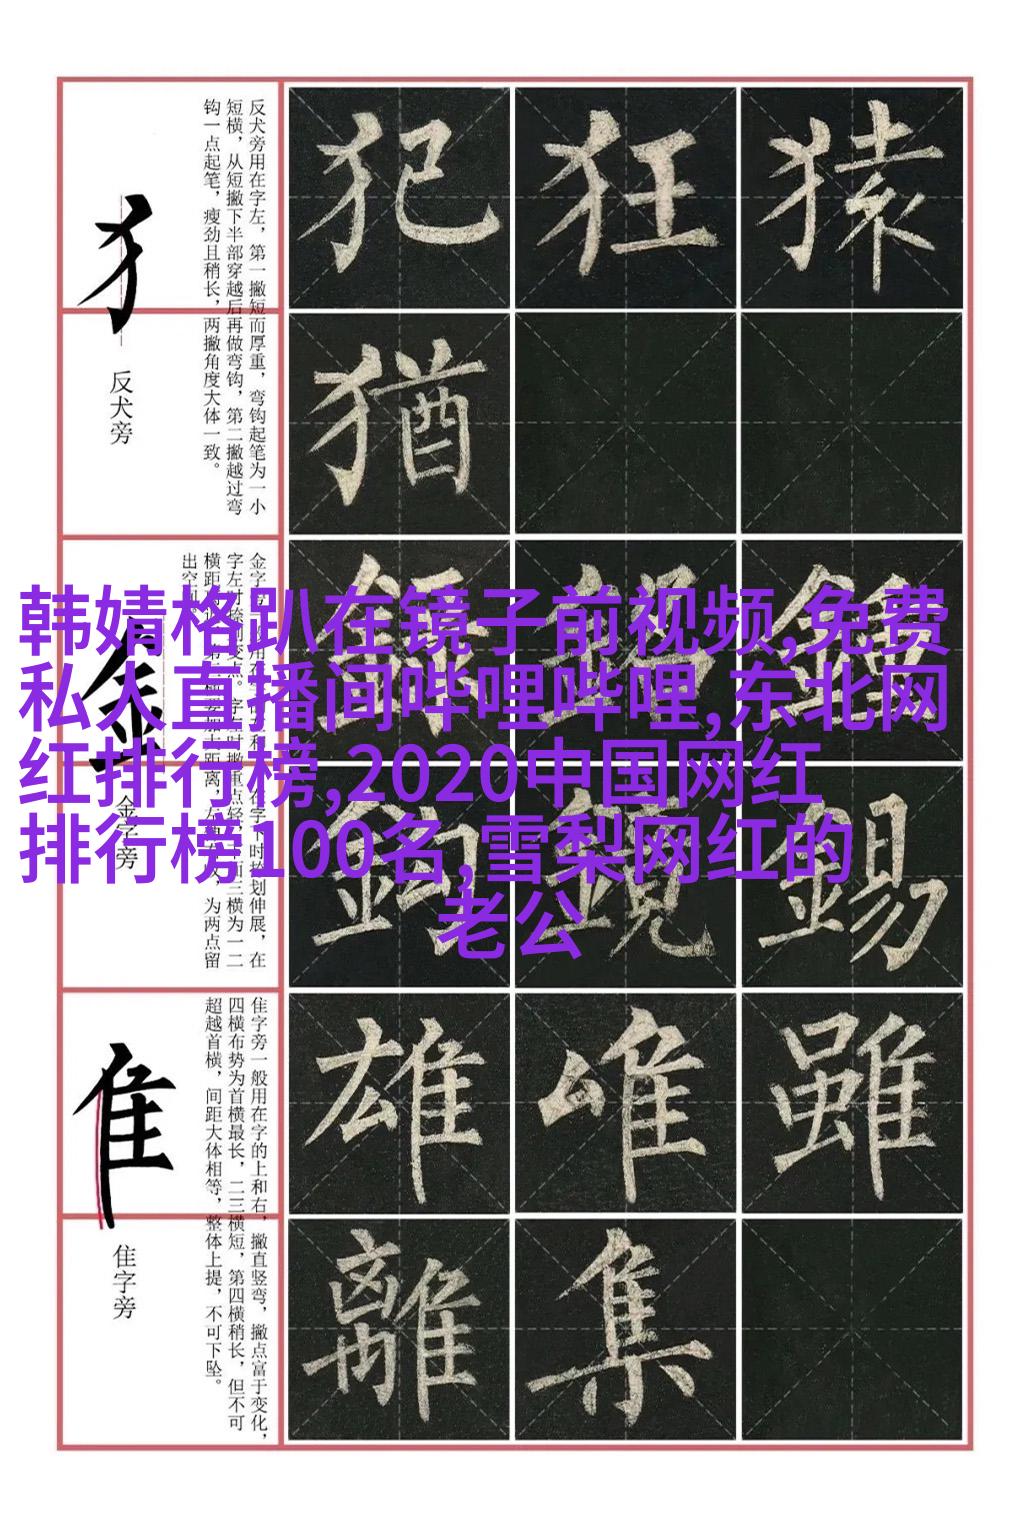 犯 狂 猿
犹
反犬旁用在字左，第一撇短而厚重，弯钩起笔为一小
短横，从短撇下半部穿越后再做弯钩，第二撇越过弯
钩一点起笔，瘦劲且稍长，两撇角度大体一致。
犭
反犬旁
韩婧格趴在镜子前视频,免费
私人直播间哔哩哔哩,东北网
红排行榜,2020中国网红
排行榜100名,雪梨网红的
老公
金字旁
雄 唯 雖
離 集
隹字旁一般用在字的上和右，撇直竖弯，撇点富于变化，
四横布势为首横最长，二三横短，第四横稍长，但不可
超越首横，间距大体相等，整体上提，不可下坠。
隹
隹字旁